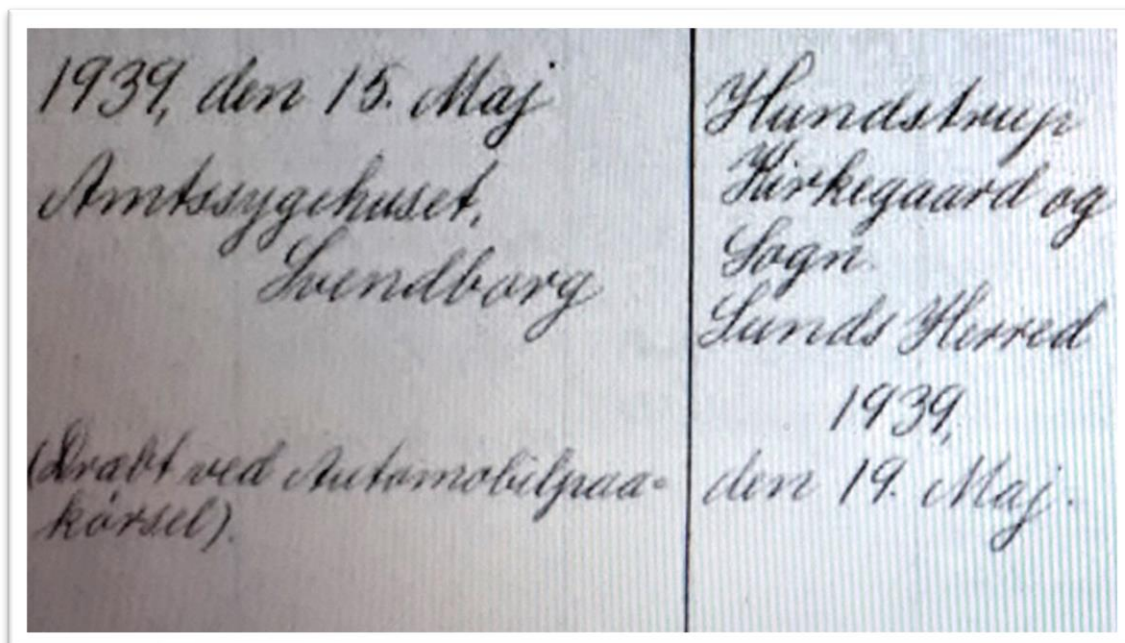 1939, den 15. Maj
Amtssygehuset,
Svendborg
(Dræbt ved Automobilpaa=
körsel).
Hundstrup
Kirkegaard og
Sogn.
Sunds Herred
1939,
den 19. Maj.